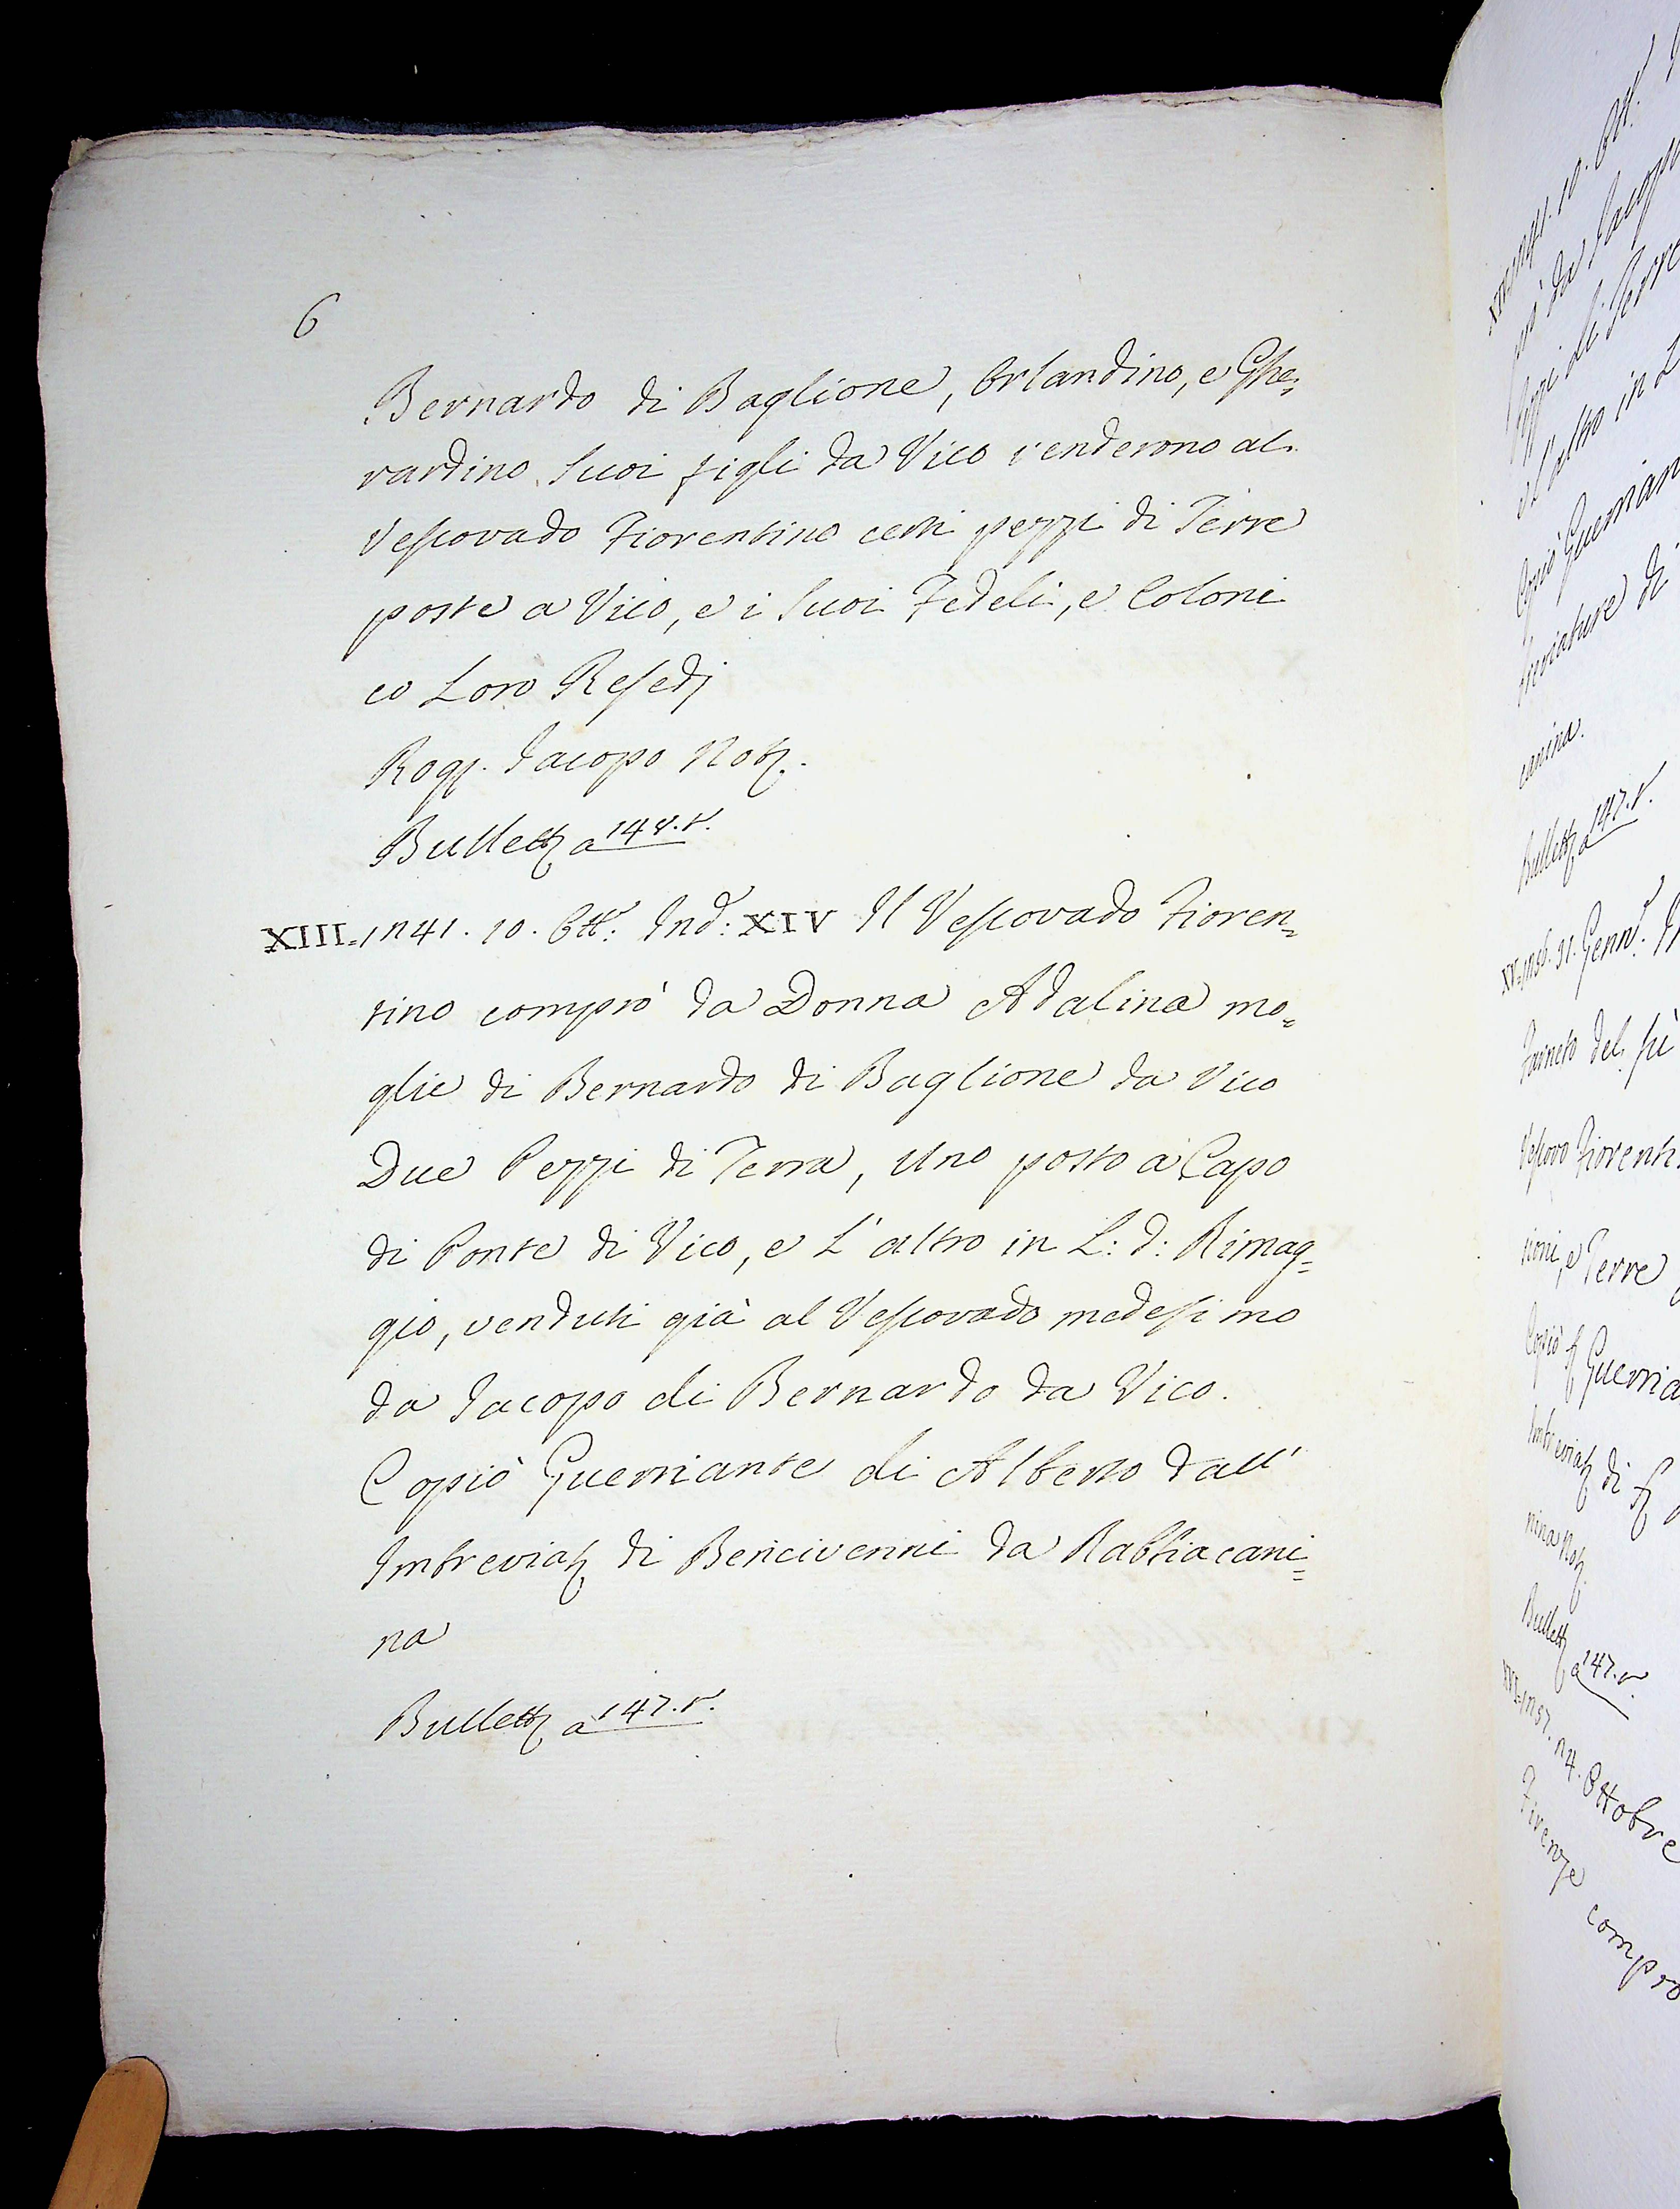 6
Bernardo di Baglione, Orlandino, e Ghe=
rardino Suoi figli da Vico venderono al
Vescovado Fiorentino certi pezzi di Terre
poste a Vico, e i Suoi Fedeli, e Coloni
co Loro Resedj
Rog. Jacopo Not.
Bullett. a 148. r.
XIII. 1241. 10. Ott.e Ind: XIV Il Vescovado Fioren=
tino comprò da Donna Adalina mo=
glie di Bernardo di Baglione da Vico
Due Pezzi di Terra, Uno posto a Capo
di Ponte di Vico, e L'altro in L: d: Rimag=
gio, venduti già al Vescovado medesimo
da Jacopo di Bernardo da Vico.
Copiò Guerriante di Alberto dall'
Imbreviat. di Bencivenni da Rabbiacani=
na
Bullett. a 147. r.
10. Ott.
da Jacopo
di Terre
l'altro in L
Copiò Guerrian
breviature di
canina.
Bullett. a 147. r.
31. Genn.
del fù
Vescovo Fiorenti
e Terre
Copiò Guerria
Imbreviat. di
nina Not.
Bullett. a 147. r.
Ottobre
Firenze compro